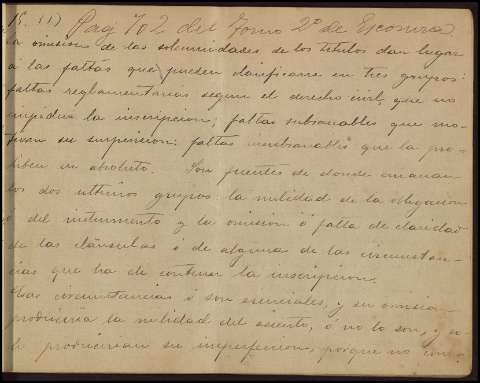 15. (1) Pag 702 del Tomo 2º de Escosura
La omision de las solemnidades de los titulos dan lugar
á las faltas que pueden clasificarse en tres grupos:
faltas reglamentarias segun el derecho civil, que no
impiden la inscripcion; faltas subsanables que mo-
tivan su suspension: faltas insubsanables que la pro-
hiben en absoluto. Son fuentes de donde emanan
los dos ultimos grupos: la nulidad de la obligacion
ó del instrumento y la omision ó falta de claridad
de las cláusulas ó de alguna de las circunstan-
cias que ha de contener la inscripcion.
Esas circunstancias ó son esenciales, y su omision
produciria la nulidad del asiento, ó no lo son, y so-
lo producirian su imperfeccion, porque no como